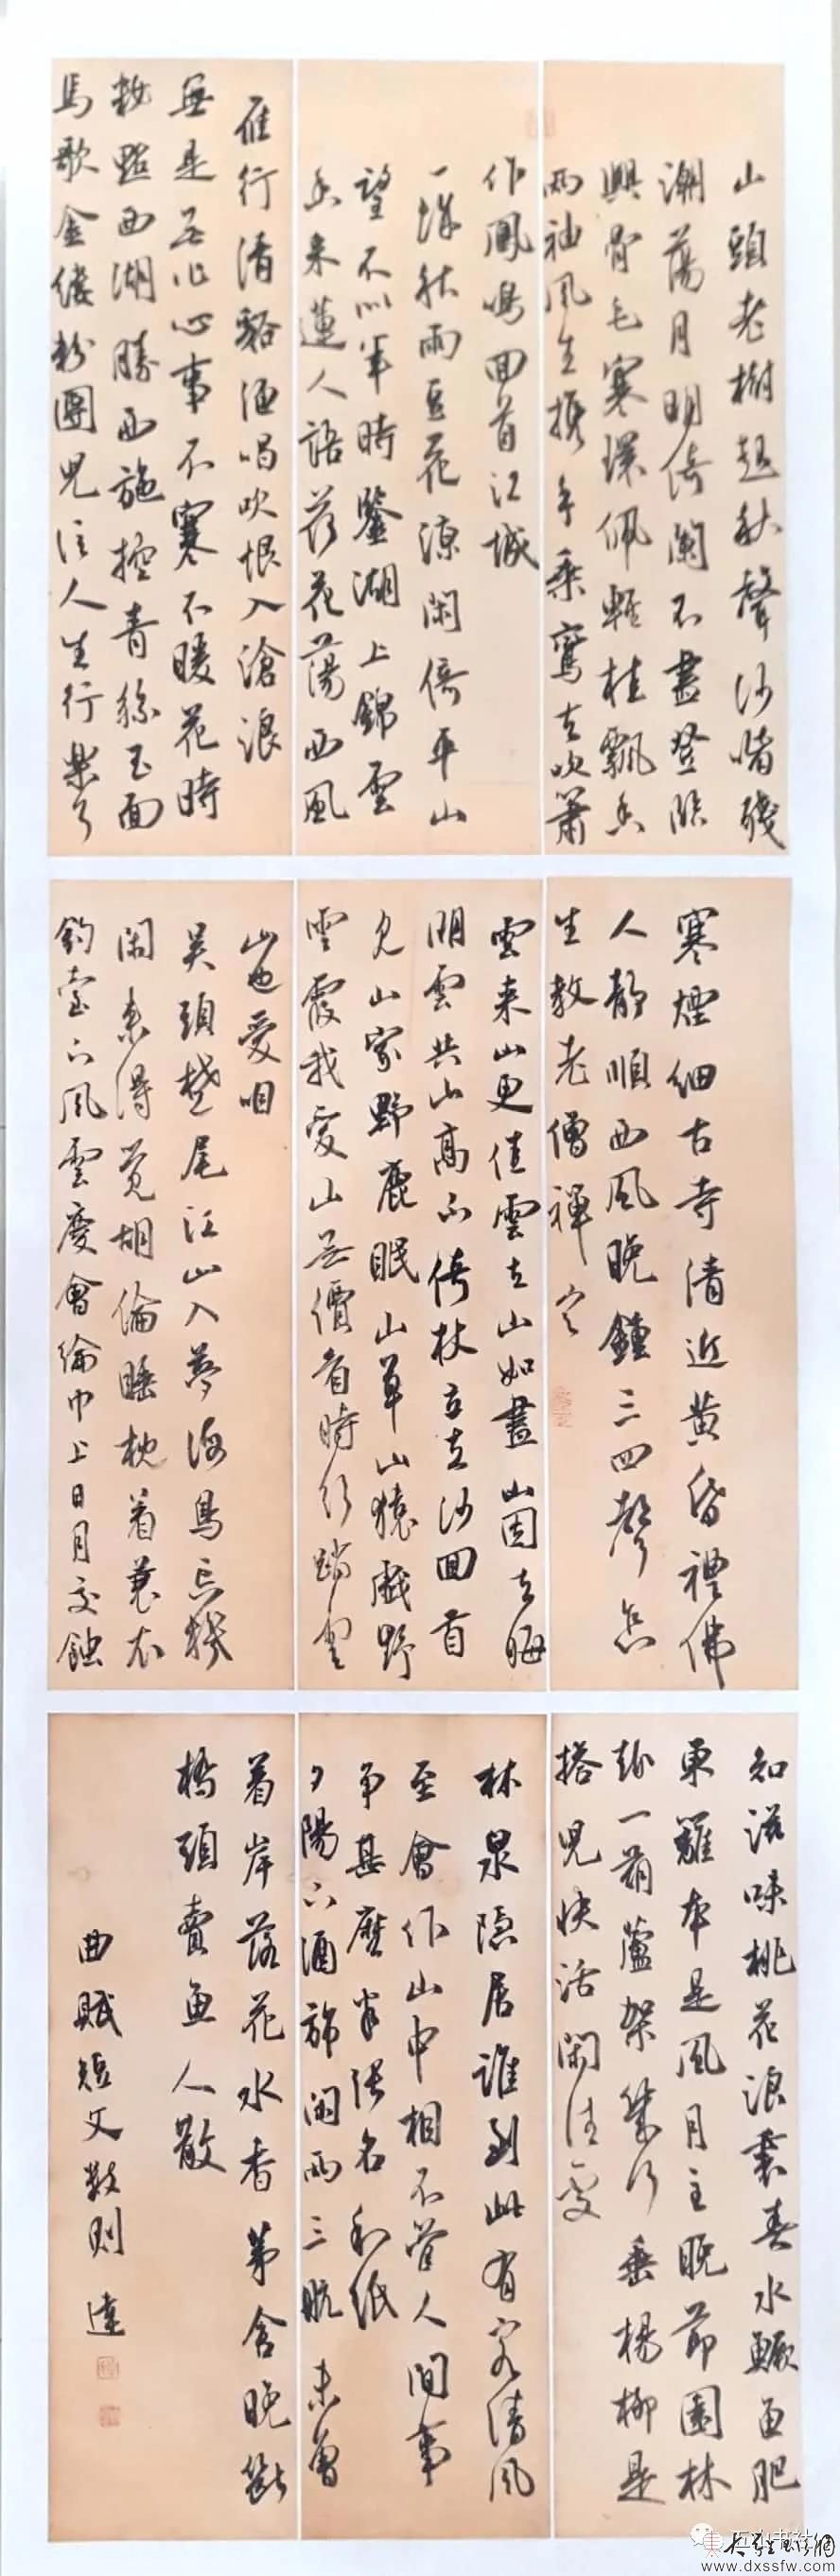 山頭老樹起秋聲沙嘴殘
潮蕩月明倚闌不盡登臨
興骨毛寒環佩輕桂飄香
兩袖風生攜手乘鸞去吹簫
作鳳鳴回首江城
一棚秋雨豆花涼閑倚平山
望不似年時鑒湖上錦雲
香采蓮人語荷花蕩西風
雁行清谿漁唱吹恨入滄浪
無是無非心事不寒不暖花時
妝點西湖勝西施控青絲玉面
馬歌金縷粉團兒信人生行樂耳
寒煙細古寺清近黃昏禮佛
人靜順西風晚鐘三四聲怎
生教老僧禪定
雲來山更佳雲去山如畫山因雲晦
明雲共山高下倚杖立雲沙回首
見山家野鹿眠山草山猿戲野
雲霞我愛山無價看時行踏雲
山也愛咱
吳頭楚尾江山入夢海鳥忘機
閑來得覺胡倫睡枕著蓑衣
釣臺下風雲慶會綸巾上日月交蝕
知滋味桃花浪裏春水鱖魚肥
東籬本是風月主晚節園林
趣一葫蘆架幾行垂楊柳是
搭兒快活閑住處
林泉隱居誰到此有客清風
至會作山中相不管人間事
爭甚麼半張名利紙
夕陽下酒旆閑兩三航未曾
著岸落花水香茅舍晚斷
橋頭賣魚人散
曲賦短文數則 達
五山书社
大學書法網
www.dxssfw.com